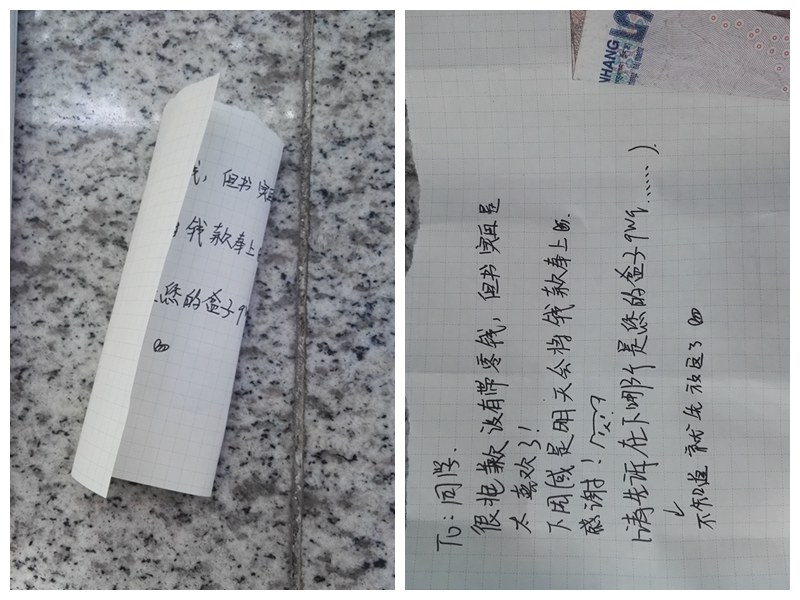 钱,但书实在
钱款奉上
您的盒子q
To:同学.
很抱歉没有带零钱,但书实在是
太喜欢了!
下周或是明天会将钱款奉上的.
感谢!
(请告诉在下哪个是您的盒子qwq......).
不知道就先放这了
NHANG